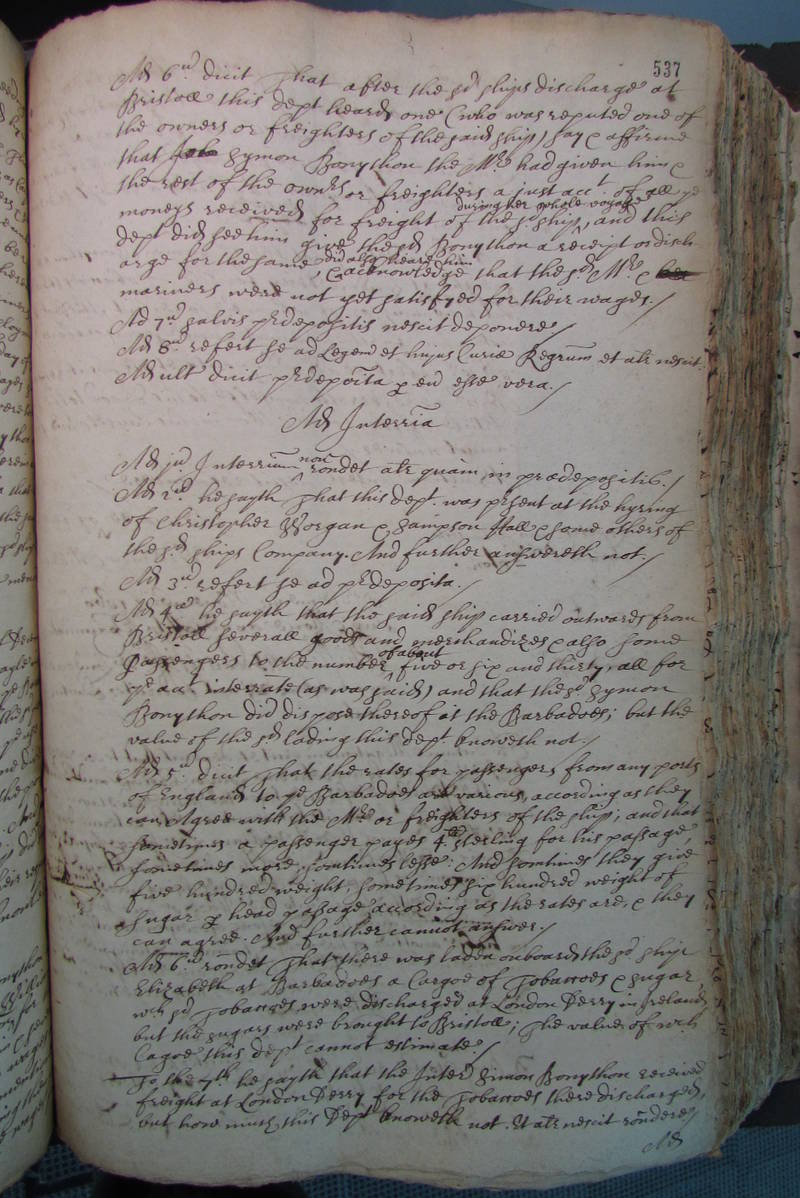 537
Ad 6um dicit That after the sd ships discharge at
Bristoll this dept heard one (who was reputed one of
the owners or freighters of the said ship) say & affirme
that Symon Bonython the Mr had given him &
the rest of the owners or freighters a just acct of all ye
moneys received for freight of the sd ship, and this
during her whole voyage
dept did see him give the sd Bonython a receipt or disch-
arge for the same & acknowledge that the sd Mr &
did also heare him
mariners were not yet satisfyed for their wages./
Ad 7um salvis prdepositis nescit deponere/
Ad 8um refert se ad Legem et hujus Curiæ Regrum et alr nescit.
Ad ult dicit prdeposita p eum esse vera./
Ad Interria
Ad jum Interrium non rondet alr quam in prædepositis./
Ad 2um he sayth That this dept was prsent at the hyring
of Christopher Worgan & Sampson Hall & some others of
the sd ships Company. And further answereth not./
Ad 3um refert se ad prdeposita./
Ad 4um he sayth that the said ship carried outwards from
Bristoll severall goods and merchandizes & also some
Passengers to the number of about five or six and thirty, all for
ye acct interrate (as was said) and that the sd Symon
Bonython did dispose thereof at the Barbadoes; but the
value of the sd lading this dept knoweth not./
Ad 5um dicit That the rates for passengers from any ports
of England to ye Barbadoes are various, according as they
can Agree with the Mr or freighters of the ship; and that
sometimes a passenger payes 4li sterling for his passage
sometimes more, somtimes lesse: And somtimes they give
five hundred weight, sometimes six hundred weight of
sugar p head passage according as the rates are, & they
can agree. And further cannot answer./
Ad 6um rondet That there was laden onboard the sd ship
Elizabeth at Barbadoes a Cargoe of Tobaccoes & sugar,
wch sd Tobaccoes were discharged at London Derry in Ireland,
but the sugars were brought to Bristoll; The value of wch
Cagoe this dept cannot estimate./
To the 7th he sayth that the Interd Simon Bonython received
freight at London Derry for the Tobaccoes there discharged,
but how much this Dept knoweth not. Et alr nescit rondere/
Ad